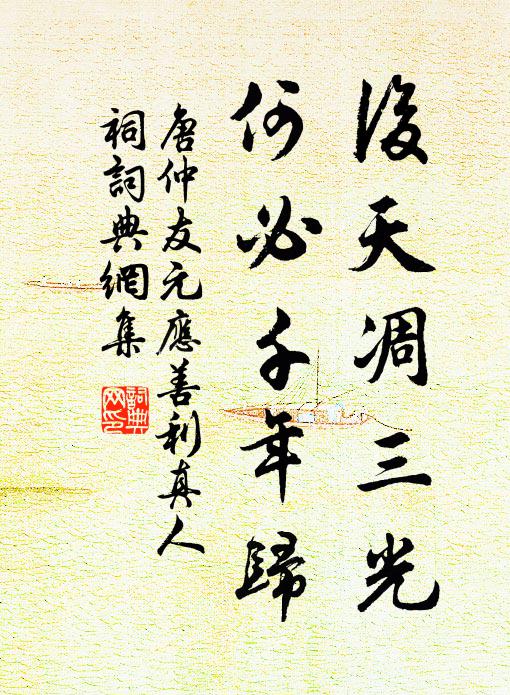 後天凋三光
何必千年歸
唐仲友元應善利真人
祠詞典網集
詞典
网印